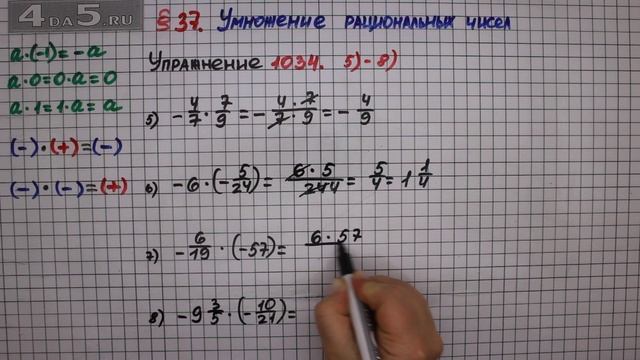 4DA5.RU
§ 37. Умножение рациональных чисел
a·(-1)=-a
a·0=0·a=0
a·1=1·a=a
(-)·(+)=(-)
(-)·(-)=(+)
Упражнение 1034. 5)-8)
5) -4/7 · 7/9 = - 4·7/7·9 = - 4/9
6) -6·(-5/24) = 6·5/24 4 = 5/4 = 1 1/4
7) -6/19 · (-57) = 6·57
8) -9 3/5 · (-10/21) =